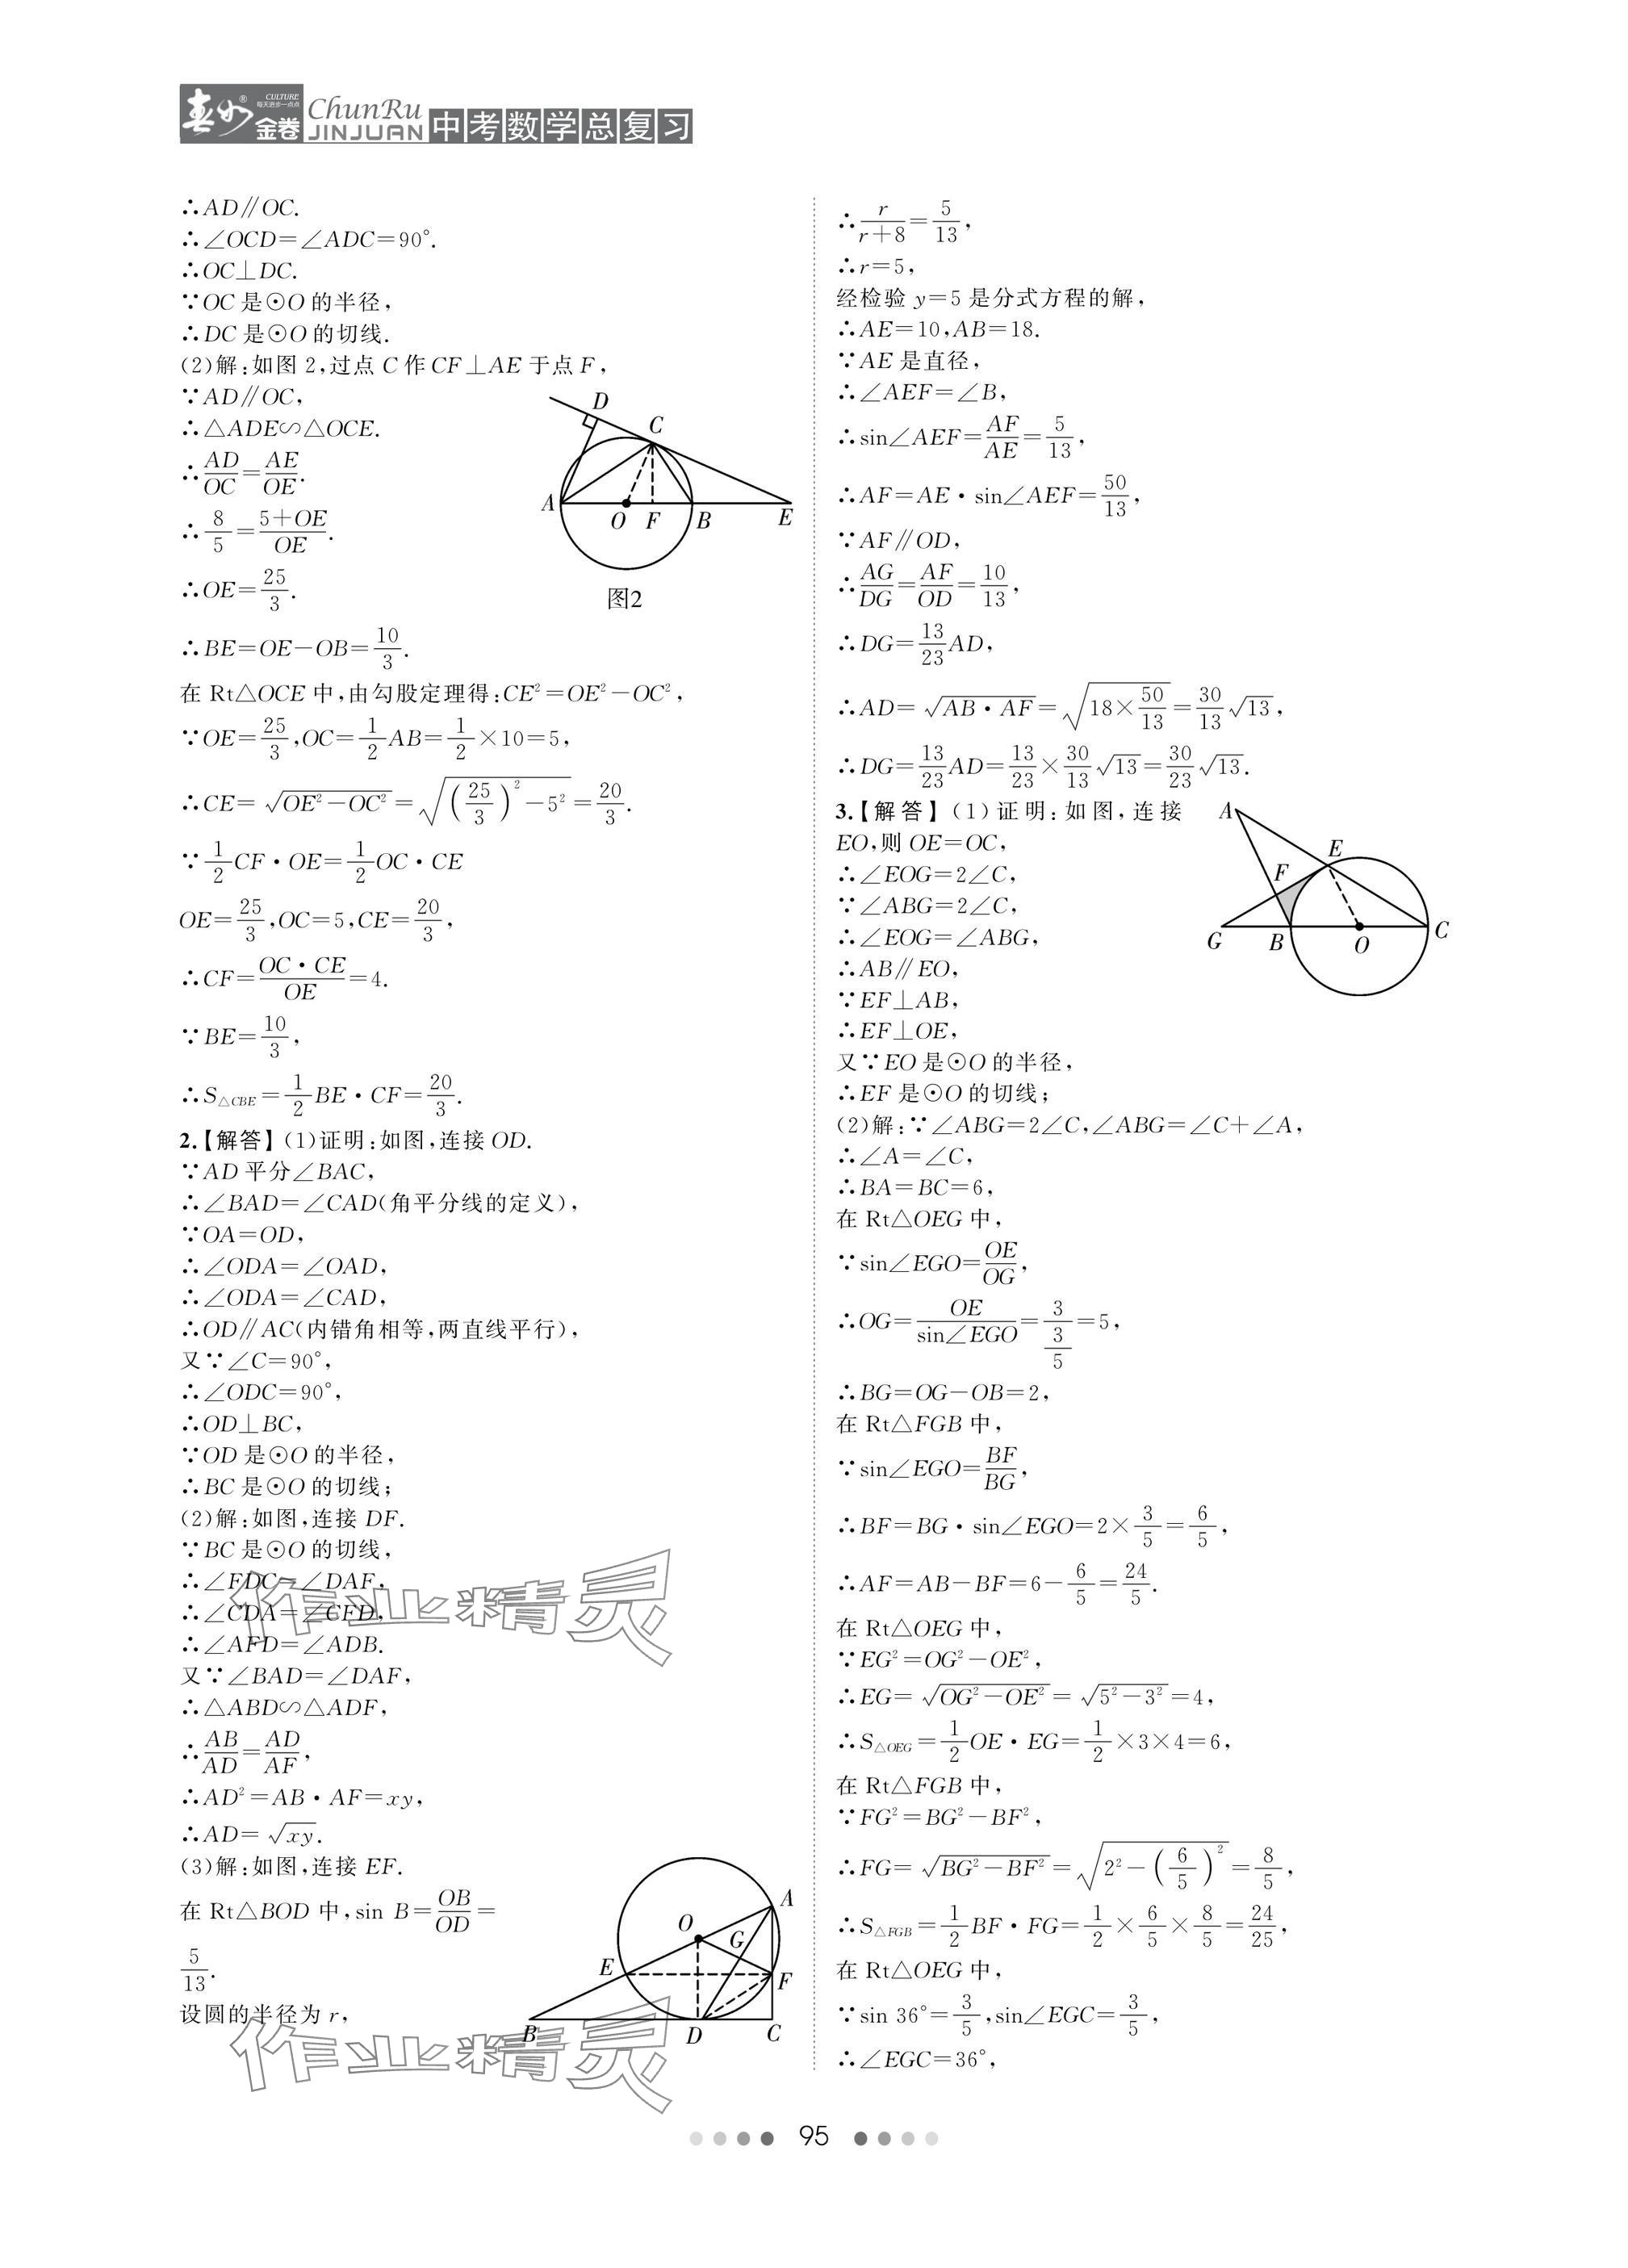 春如®金卷 CULTURE 每天进步一点点 ChunRu JINJUAN 中考数学总复习
∴AD∥OC.
∴∠OCD=∠ADC=90°.
∴OC⊥DC.
∵OC 是⊙O 的半径,
∴DC 是⊙O 的切线.
(2)解:如图 2,过点 C 作 CF⊥AE 于点 F,
∵AD∥OC,
∴△ADE∽△OCE.
∴AD/OC=AE/OE.
∴8/5=(5+OE)/OE.
∴OE=25/3.
D
C
A
O
F
B
E
图2
∴BE=OE-OB=10/3.
在 Rt△OCE 中,由勾股定理得:CE²=OE²-OC²,
∵OE=25/3,OC=1/2AB=1/2×10=5,
∴CE=√(OE²-OC²)=√((25/3)²-5²)=20/3.
∵1/2CF·OE=1/2OC·CE
OE=25/3,OC=5,CE=20/3,
∴CF=(OC·CE)/OE=4.
∵BE=10/3,
∴S△CBE=1/2BE·CF=20/3.
2.【解答】(1)证明:如图,连接 OD.
∵AD 平分∠BAC,
∴∠BAD=∠CAD(角平分线的定义),
∵OA=OD,
∴∠ODA=∠OAD,
∴∠ODA=∠CAD,
∴OD∥AC(内错角相等,两直线平行),
又∵∠C=90°,
∴∠ODC=90°,
∴OD⊥BC,
∵OD 是⊙O 的半径,
∴BC 是⊙O 的切线;
(2)解:如图,连接 DF.
∵BC 是⊙O 的切线,
∴∠FDC=∠DAF,
∴∠CDA=∠CFD,
∴∠AFD=∠ADB.
又∵∠BAD=∠DAF,
∴△ABD∽△ADF,
∴AB/AD=AD/AF,
∴AD²=AB·AF=xy,
∴AD=√(xy).
(3)解:如图,连接 EF.
在 Rt△BOD 中,sin B=OB/OD=
5/13.
设圆的半径为 r,
A
O
G
E
F
B
D
C
作业精灵
作业精灵
∴r/(r+8)=5/13,
∴r=5,
经检验 y=5 是分式方程的解,
∴AE=10,AB=18.
∵AE 是直径,
∴∠AEF=∠B,
∴sin∠AEF=AF/AE=5/13,
∴AF=AE·sin∠AEF=50/13,
∵AF∥OD,
∴AG/DG=AF/OD=10/13,
∴DG=13/23AD,
∴AD=√(AB·AF)=√(18×50/13)=30/13√13,
∴DG=13/23AD=13/23×30/13√13=30/23√13.
3.【解答】(1)证明:如图,连接
EO,则 OE=OC,
∴∠EOG=2∠C,
∵∠ABG=2∠C,
∴∠EOG=∠ABG,
∴AB∥EO,
∵EF⊥AB,
∴EF⊥OE,
又∵EO 是⊙O 的半径,
∴EF 是⊙O 的切线;
A
E
F
G
B
O
C
(2)解:∵∠ABG=2∠C,∠ABG=∠C+∠A,
∴∠A=∠C,
∴BA=BC=6,
在 Rt△OEG 中,
∵sin∠EGO=OE/OG,
∴OG=OE/sin∠EGO=3/(3/5)=5,
∴BG=OG-OB=2,
在 Rt△FGB 中,
∵sin∠EGO=BF/BG,
∴BF=BG·sin∠EGO=2×3/5=6/5,
∴AF=AB-BF=6-6/5=24/5.
在 Rt△OEG 中,
∵EG²=OG²-OE²,
∴EG=√(OG²-OE²)=√(5²-3²)=4,
∴S△OEG=1/2OE·EG=1/2×3×4=6,
在 Rt△FGB 中,
∵FG²=BG²-BF²,
∴FG=√(BG²-BF²)=√(2²-(6/5)²)=8/5,
∴S△FGB=1/2BF·FG=1/2×6/5×8/5=24/25,
在 Rt△OEG 中,
∵sin 36°=3/5,sin∠EGC=3/5,
∴∠EGC=36°,
95